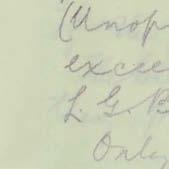 (Unop
excee
L. G. B
Only